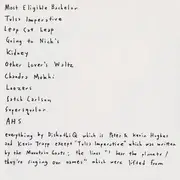 Most Eligible Bachelor
Tulsa Imperative
Leap Cat Leap
Going to Nick's
Kidney
Other Lover's Waltz
Chandra Mukhi
Loozers
Satch Carlson
Supersqualor
AHS
everything by DiskothiQ which is Peter & Kevin Hughes
and Kevin Trapp except "Tulsa Imperative" which was written
by the Mountain Goats; the lines "I hear the planets /
they're singing our names" which were lifted from